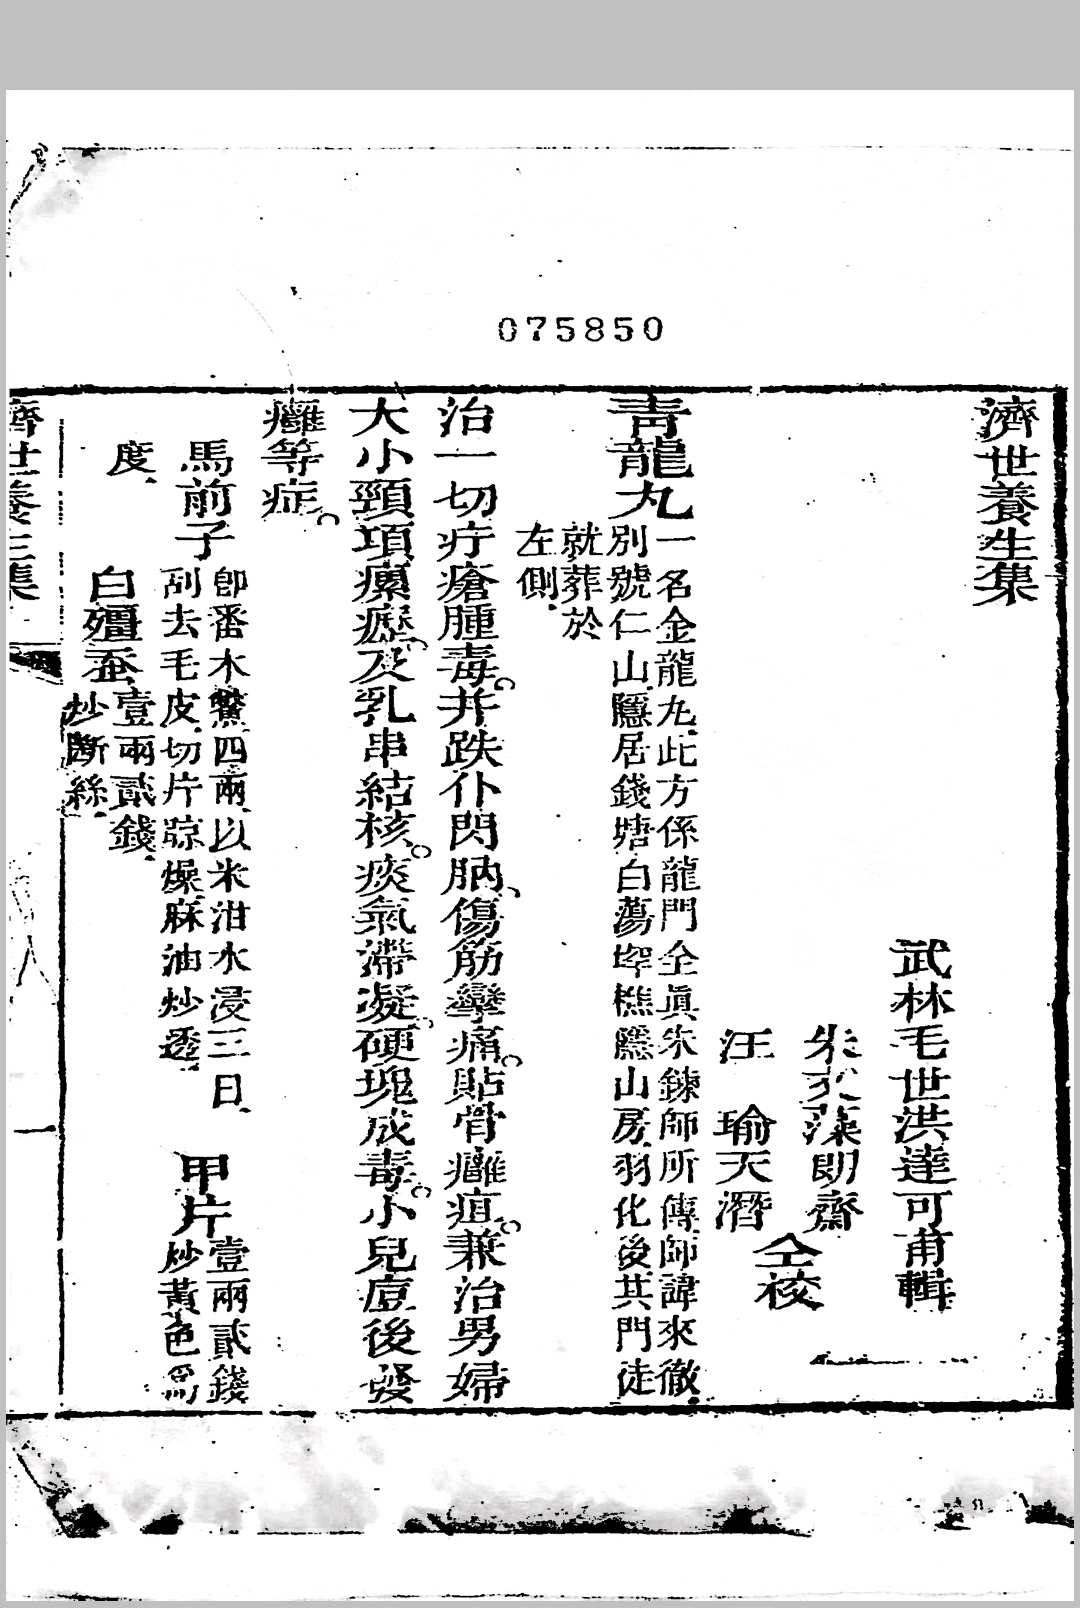 075850
濟世養生集
武林毛世洪達可甫輯
朱文藻朗齋
汪瑜天潛
仝校
青龍丸
一名金龍丸、此方係龍門全眞朱鍊師所傳師諱來徹、
別號仁山、隱居錢塘白蕩墠樵隱山房、羽化後其門徒
就葬於
左側、
治一切疔瘡腫毒。并跌仆閃肭、傷筋攣痛。貼骨癰疽。兼治男婦
大小頸項瘰癧。及乳串結核。痰氣滯凝。硬塊成毒。小兒痘後發
癰等症。
馬前子
卽番木鱉四兩、以米泔水浸三日、
刮去毛皮、切片晾燥、麻油炒透、
甲片
壹兩貳錢
炒黃色爲
度、
白殭蚕
壹兩貳錢、
炒斷絲、
濟世養生集
一